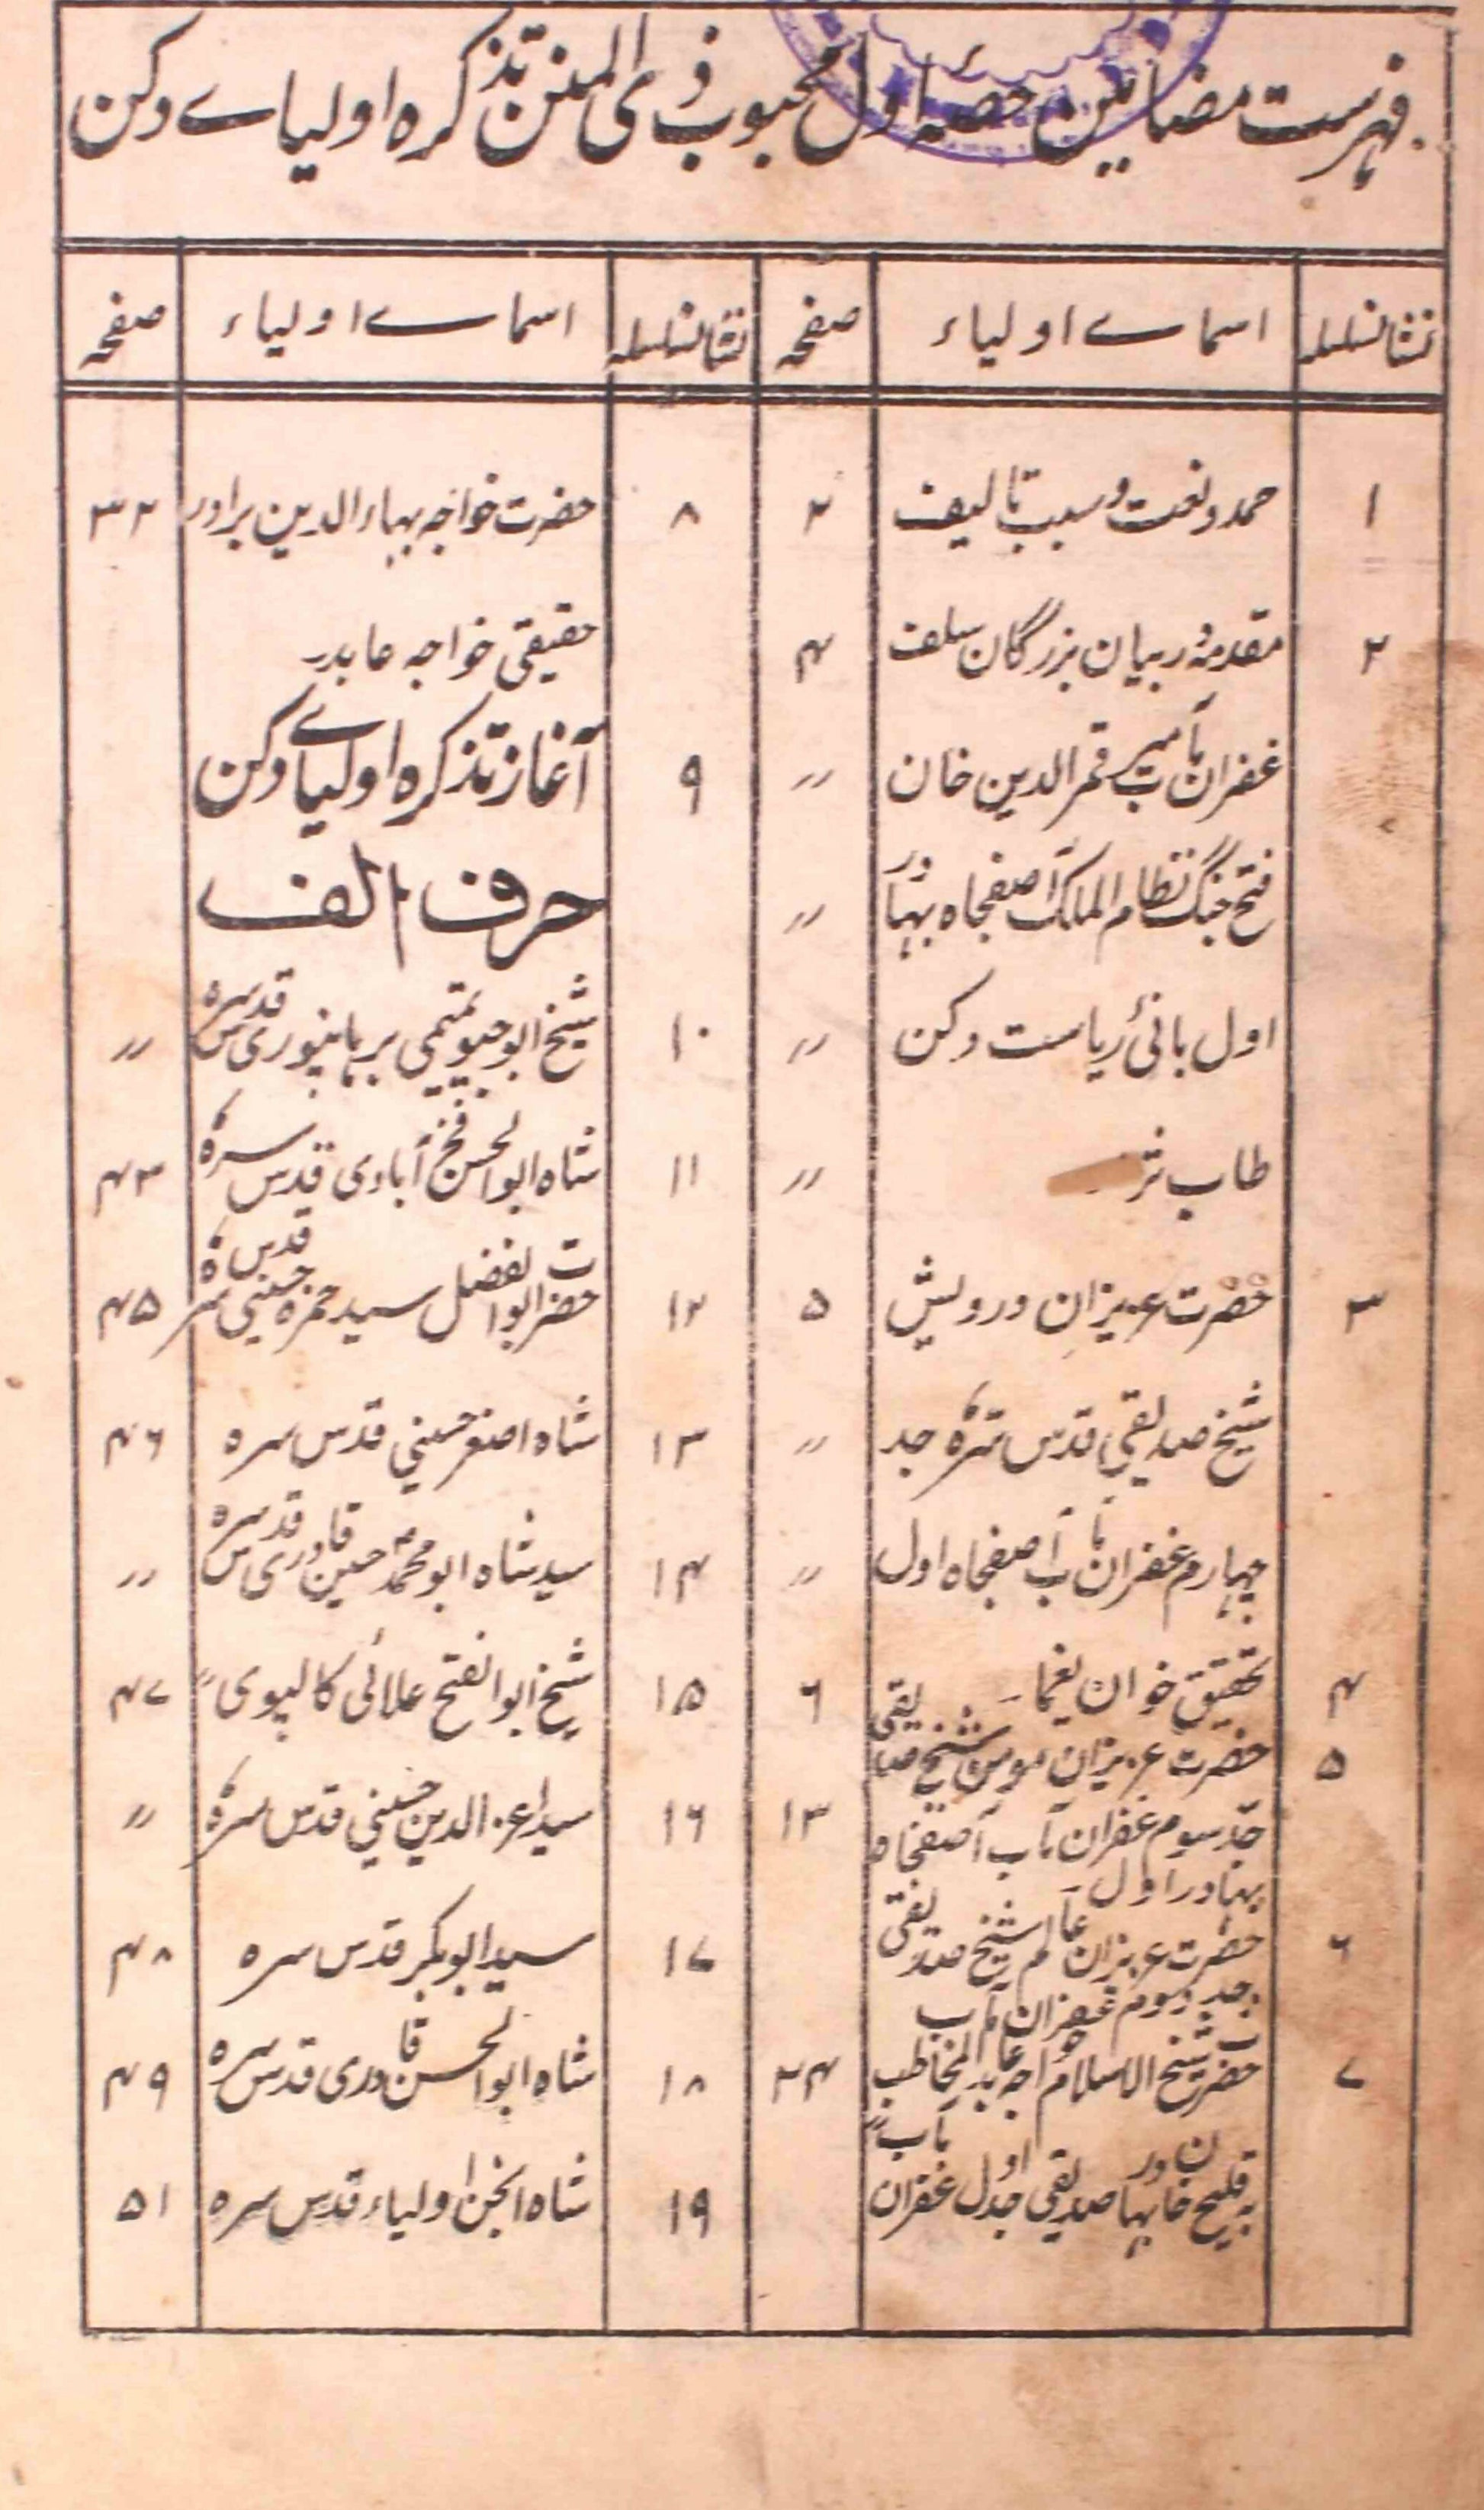 فہرست مضامین حصہ اول محبوب ذی المنن تذکرہ اولیاے دکن
نشان سلسلہ اسماے اولیاء صفحہ
۱ حمد و نعت و سبب تالیف ۲
۲ مقدمہ در بیان بزرگان سلف ۴
غفران مآب میر قمر الدین خان 〃
فتح جنگ نظام الملک آصفجاہ بہادر 〃
اول بانئ ریاست دکن 〃
طاب 〃
۳ حضرت عزیزان درویش ۵
شیخ صدیقی قدس سرہ جد 〃
چہارم غفران مآب آصفجاہ اول 〃
۴ تحقیق خوان یغما۔ ۶
۵ حضرت عزیزان مومن شیخ صدیقی
جد سیوم غفران مآب آصفجاہ ۱۳
بہادر اول۔
۶ حضرت عزیزان عالم شیخ صدیقی
جد دوم غفران مآب
۷ حضرت شیخ الاسلام خواجہ عابد المخاطب ۲۴
بہ قلیج خان بہادر صدیقی جد اول غفران مآب〃
نشان سلسلہ اسماے اولیاء صفحہ
۸ حضرت خواجہ بہاء الدین برادر ۳۲
حقیقی خواجہ عابد۔
۹ آغاز تذکرہ اولیاے دکن
حرف الف
۱۰ شیخ ابو جیو تمیمی برہانپوری قدس سرہ 〃
۱۱ شاہ ابو الحسن آبادی قدس سرہ ۴۳
۱۲ حضرت ابو الفضل سید حمزہ حسینی قدس سرہ ۴۵
۱۳ شاہ اصغر حسینی قدس سرہ ۴۶
۱۴ سید شاہ ابو محمد حسین قادری قدس سرہ 〃
۱۵ شیخ ابو الفتح علائی کالپوی〃 ۴۷
۱۶ سید اعز الدین حسینی قدس سرہ 〃
۱۷ سید ابوبکر قدس سرہ ۴۸
۱۸ شاہ ابو الحسن قادری قدس سرہ ۴۹
۱۹ شاہ انجن اولیاء قدس سرہ ۵۱